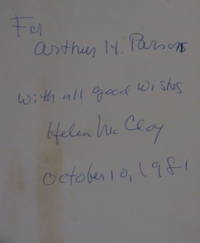 For
Arthur H. Parsons
with all good wishes
Helen McCloy
October 10, 1981